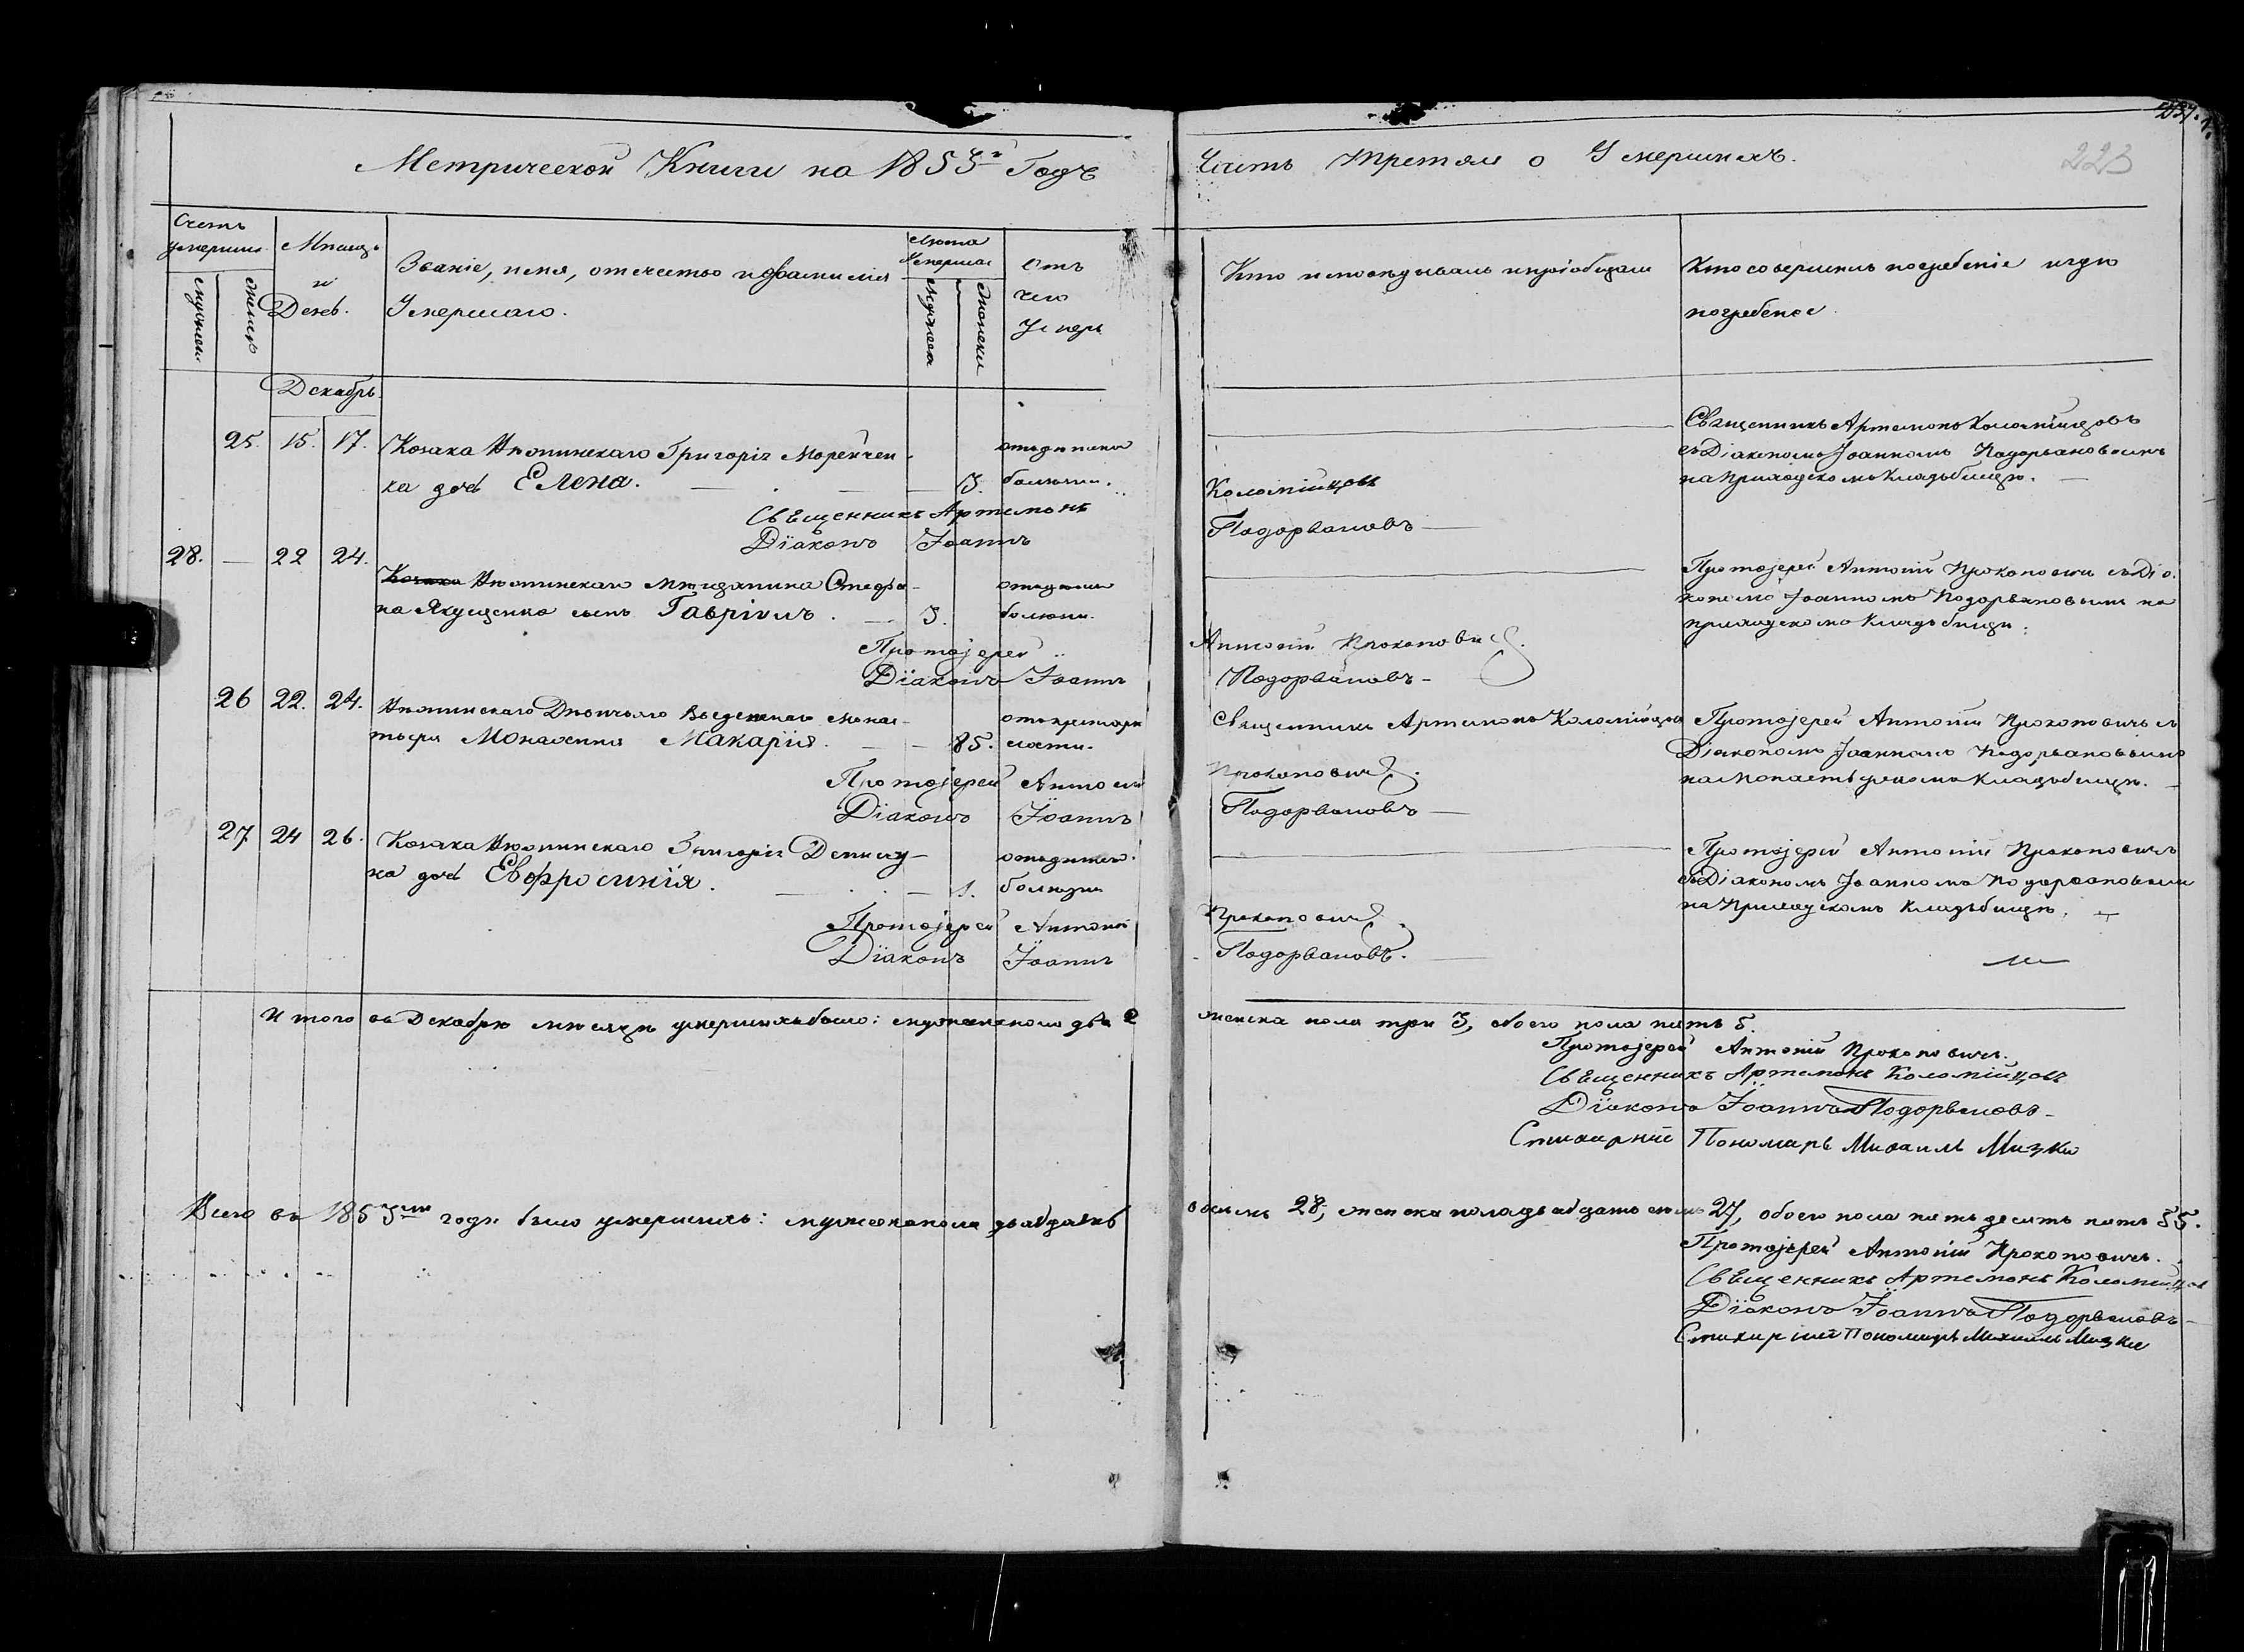 Метрической Книги на 1853й Годъ
Часть третяя о Умершихъ.
223
Счетъ умершихъ
Мѣсяц. и День.
Званіе, имя, отечество и фамилія Умершаго.
Лѣта Умершаг
Отъ чего Умеръ
Кто исповѣдывалъ и пріобщалъ
Кто совершилъ погребеніе и гдѣ погребены
Мужеск.
Женск.
Мужеска
Женски
Декабрь.
25. 15. 17. Козака Григорія Морейчен-
ка дочь Елена. 3.
болѣзни.
Священникъ Артемонъ Коломійцовъ
Діаконъ Іоаннъ Подорвановъ
Священникъ Артемонъ Коломійцовъ
съ Діакономъ Іоанномъ Подорвановымъ
на Приходскомъ Кладьбищѣ.
28. 22 24. Козака мѣщанина Стефа-
на Якущенка сынъ Гавріилъ. 3.
болѣзни.
Протоіерей Антоній Прокоповичъ
Діаконъ Іоаннъ Подорвановъ
Протоіерей Антоній Прокоповичъ съ Діа-
кономъ Іоанномъ Подорвановымъ на
приходскомъ Кладьбищѣ.
26 22. 24. Дѣвичьяго Введенскаго Монас-
тыря Монахиня Макарія. 85.
отъ престарѣ
лости.
Священникъ Артемонъ Коломійцовъ
Протоіерей Антоній Прокоповичъ
Діаконъ Іоаннъ Подорвановъ
Протоіерей Антоній Прокоповичъ съ
Діакономъ Іоанномъ Подорвановымъ
на Монастырскомъ Кладьбищѣ.
27 24 26. Козака Григорія Денису-
ка дочь Евфросинія. 1.
болѣзни
Протоіерей Антоній Прокоповичъ
Діаконъ Іоаннъ Подорвановъ.
Протоіерей Антоній Прокоповичъ
съ Діакономъ Іоанномъ Подорвановымъ
на Приходскомъ Кладьбищѣ.
Итого въ Декабрѣ мѣсяцѣ умершихъ было: мужеска пола два 2 женска пола три 3, обоего пола пять 5.
Протоіерей Антоній Прокоповичъ.
Священникъ Артемонъ Коломійцовъ
Діаконъ Іоаннъ Подорвановъ
Стихарный Пономарь Михаилъ Мизко
Всего въ 1853мъ годѣ было умершихъ: мужеска пола двадцать восемь 28, женска пола двадцать семь 27, обоего пола пятьдесятъ пять 55.
Протоіерей Антоній Прокоповичъ.
Священникъ Артемонъ Коломійцовъ
Діаконъ Іоаннъ Подорвановъ
Стихарный Пономарь Михаилъ Мизко